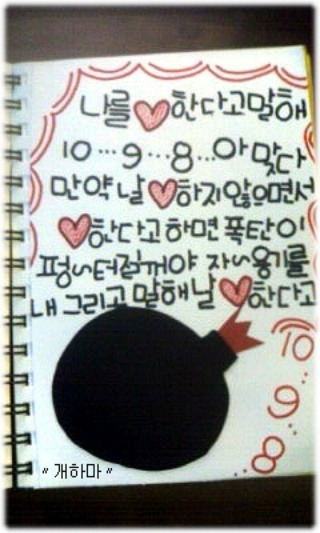 나를 ♥한다고말해
10...9...8...아맞다
만약 날 ♥하지않으면서
♥한다고하면폭탄이
펑~터질꺼야 자~용기를
내 그리고 말해날 ♥한다고
10
9
8
" 개하마 "